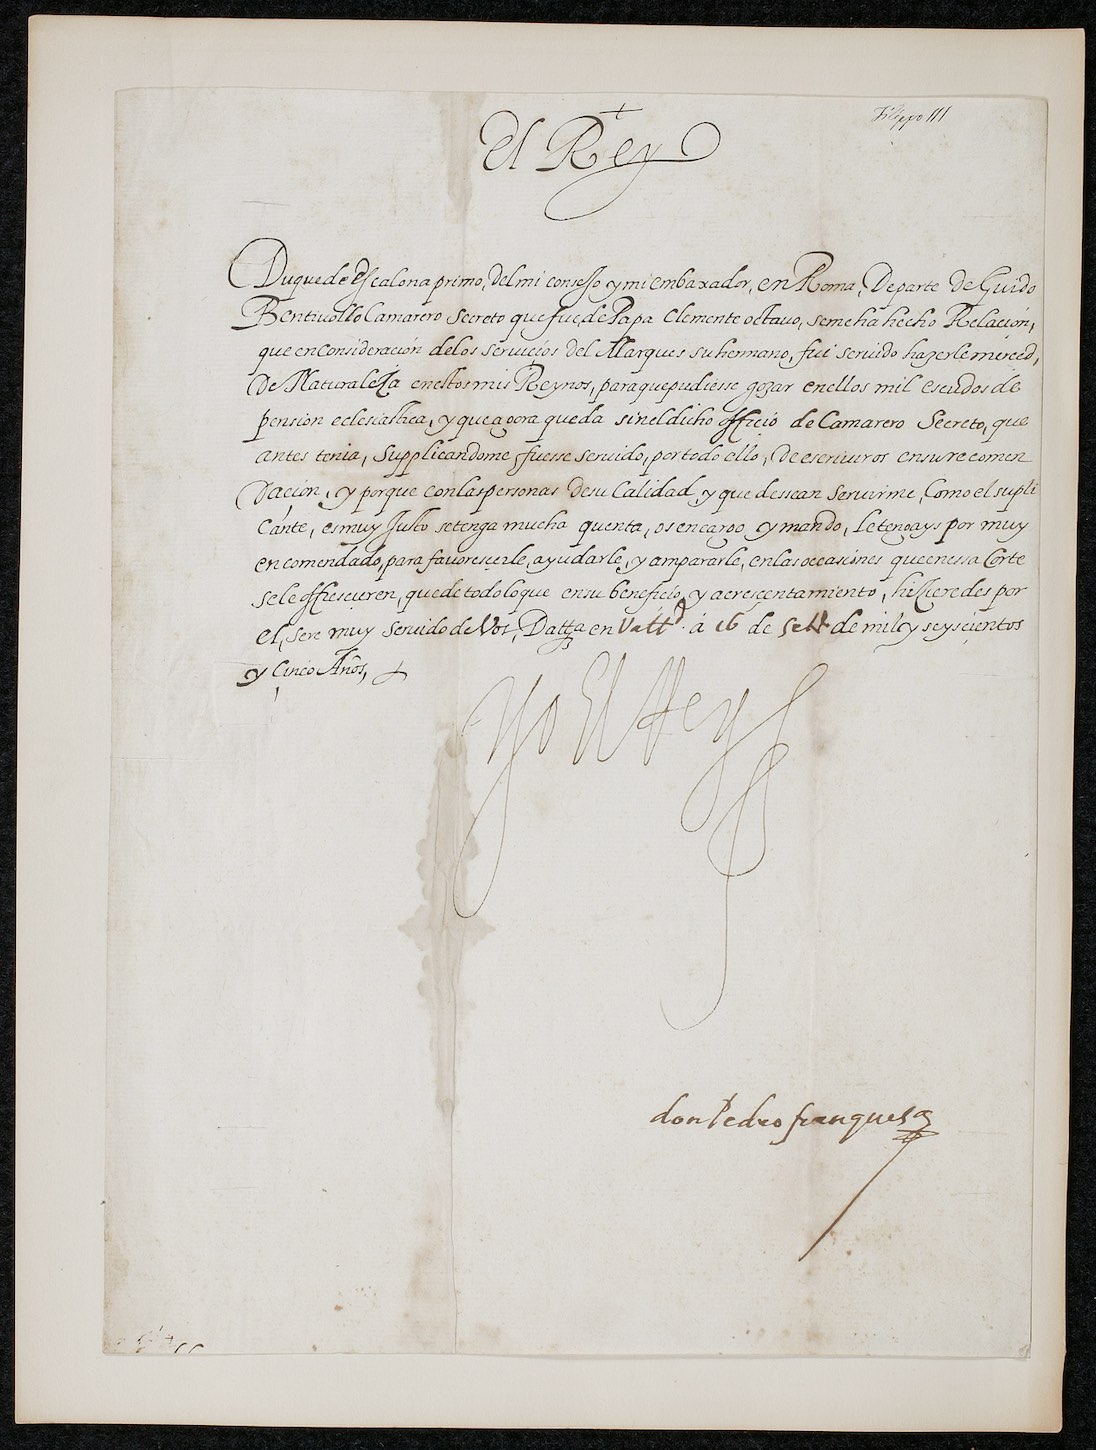 Filippo III
El Rey
Duque de Escalona primo, del mi consejo y mi embaxador, en Roma, De parte de Guido
Bentivollo Camarero Secreto que fue, de Papa Clemente octavo, se me ha hecho Relación,
que en Consideración de los serviçios del Marques su hermano, fui servido hazerle merced,
de Naturaleza en estos mis Reynos, para que pudiesse gozar en ellos mil escudos de
pension eclesiastica, y que agora queda sin el dicho officio de Camarero Secreto, que
antes tenia, Supplicandome, fuesse servido, por todo ello, de escriviros en su recomen
daçión, y porque con las personas de su Calidad, y que dessean servirme, Como el supli
cante, es muy Justo se tenga mucha quenta, os encargo y mando, le tengays por muy
encomendado, para favorescerle, ayudarle, y ampararle, en las occasiones que en essa Corte
se le offrescieren, que de todo lo que en su benefiçio, y acresçentamiento, hizieredes por
el, sere muy servido de Vos, Datta en Vall.d á 16 de Sett.e de mil y seysçientos
y Cinco Años,
Yo El Rey
don Pedro franquesa